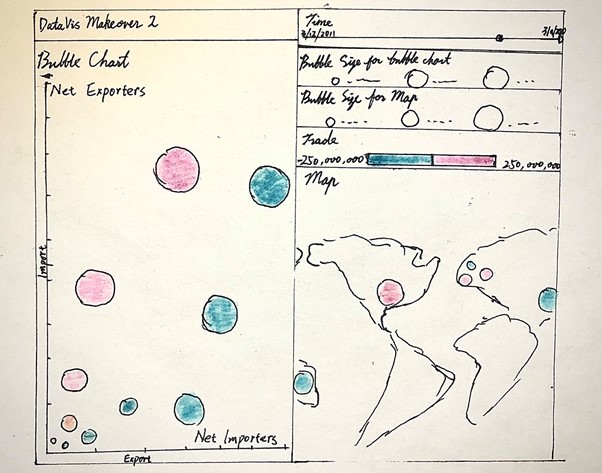 DataVis Makeover 2
Bubble Chart
Net Exporters
Import
Export
Net Importers
Time
Bubble Size for bubble chart
Bubble Size for Map
Trade
-250,000,000
250,000,000
Map